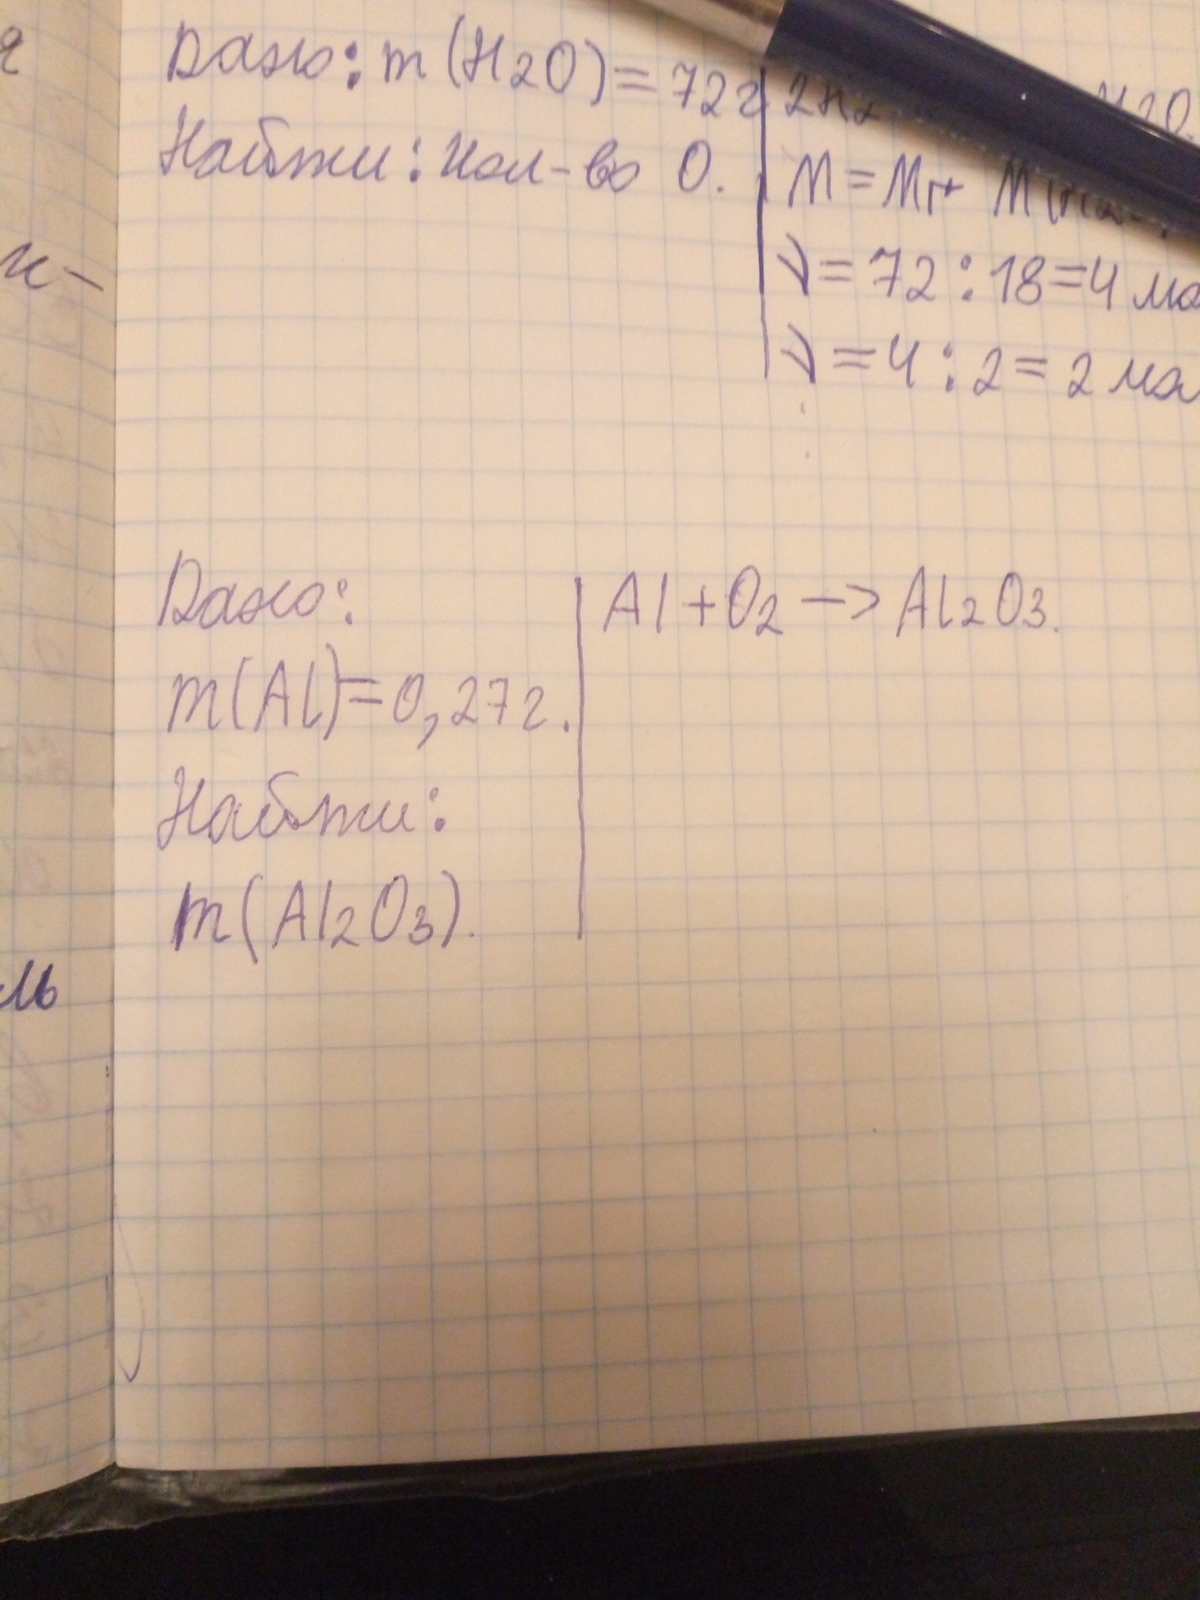 я
Дано: m(H2O)=72г
Найти: Кол-во O.
2H2 H2O.
M=Mr
ν=72:18=4
ν=4:2=2
к-
Дано:
m(Al)=0,27г.
Найти:
m(Al2O3).
Al+O2->Al2O3.
ль